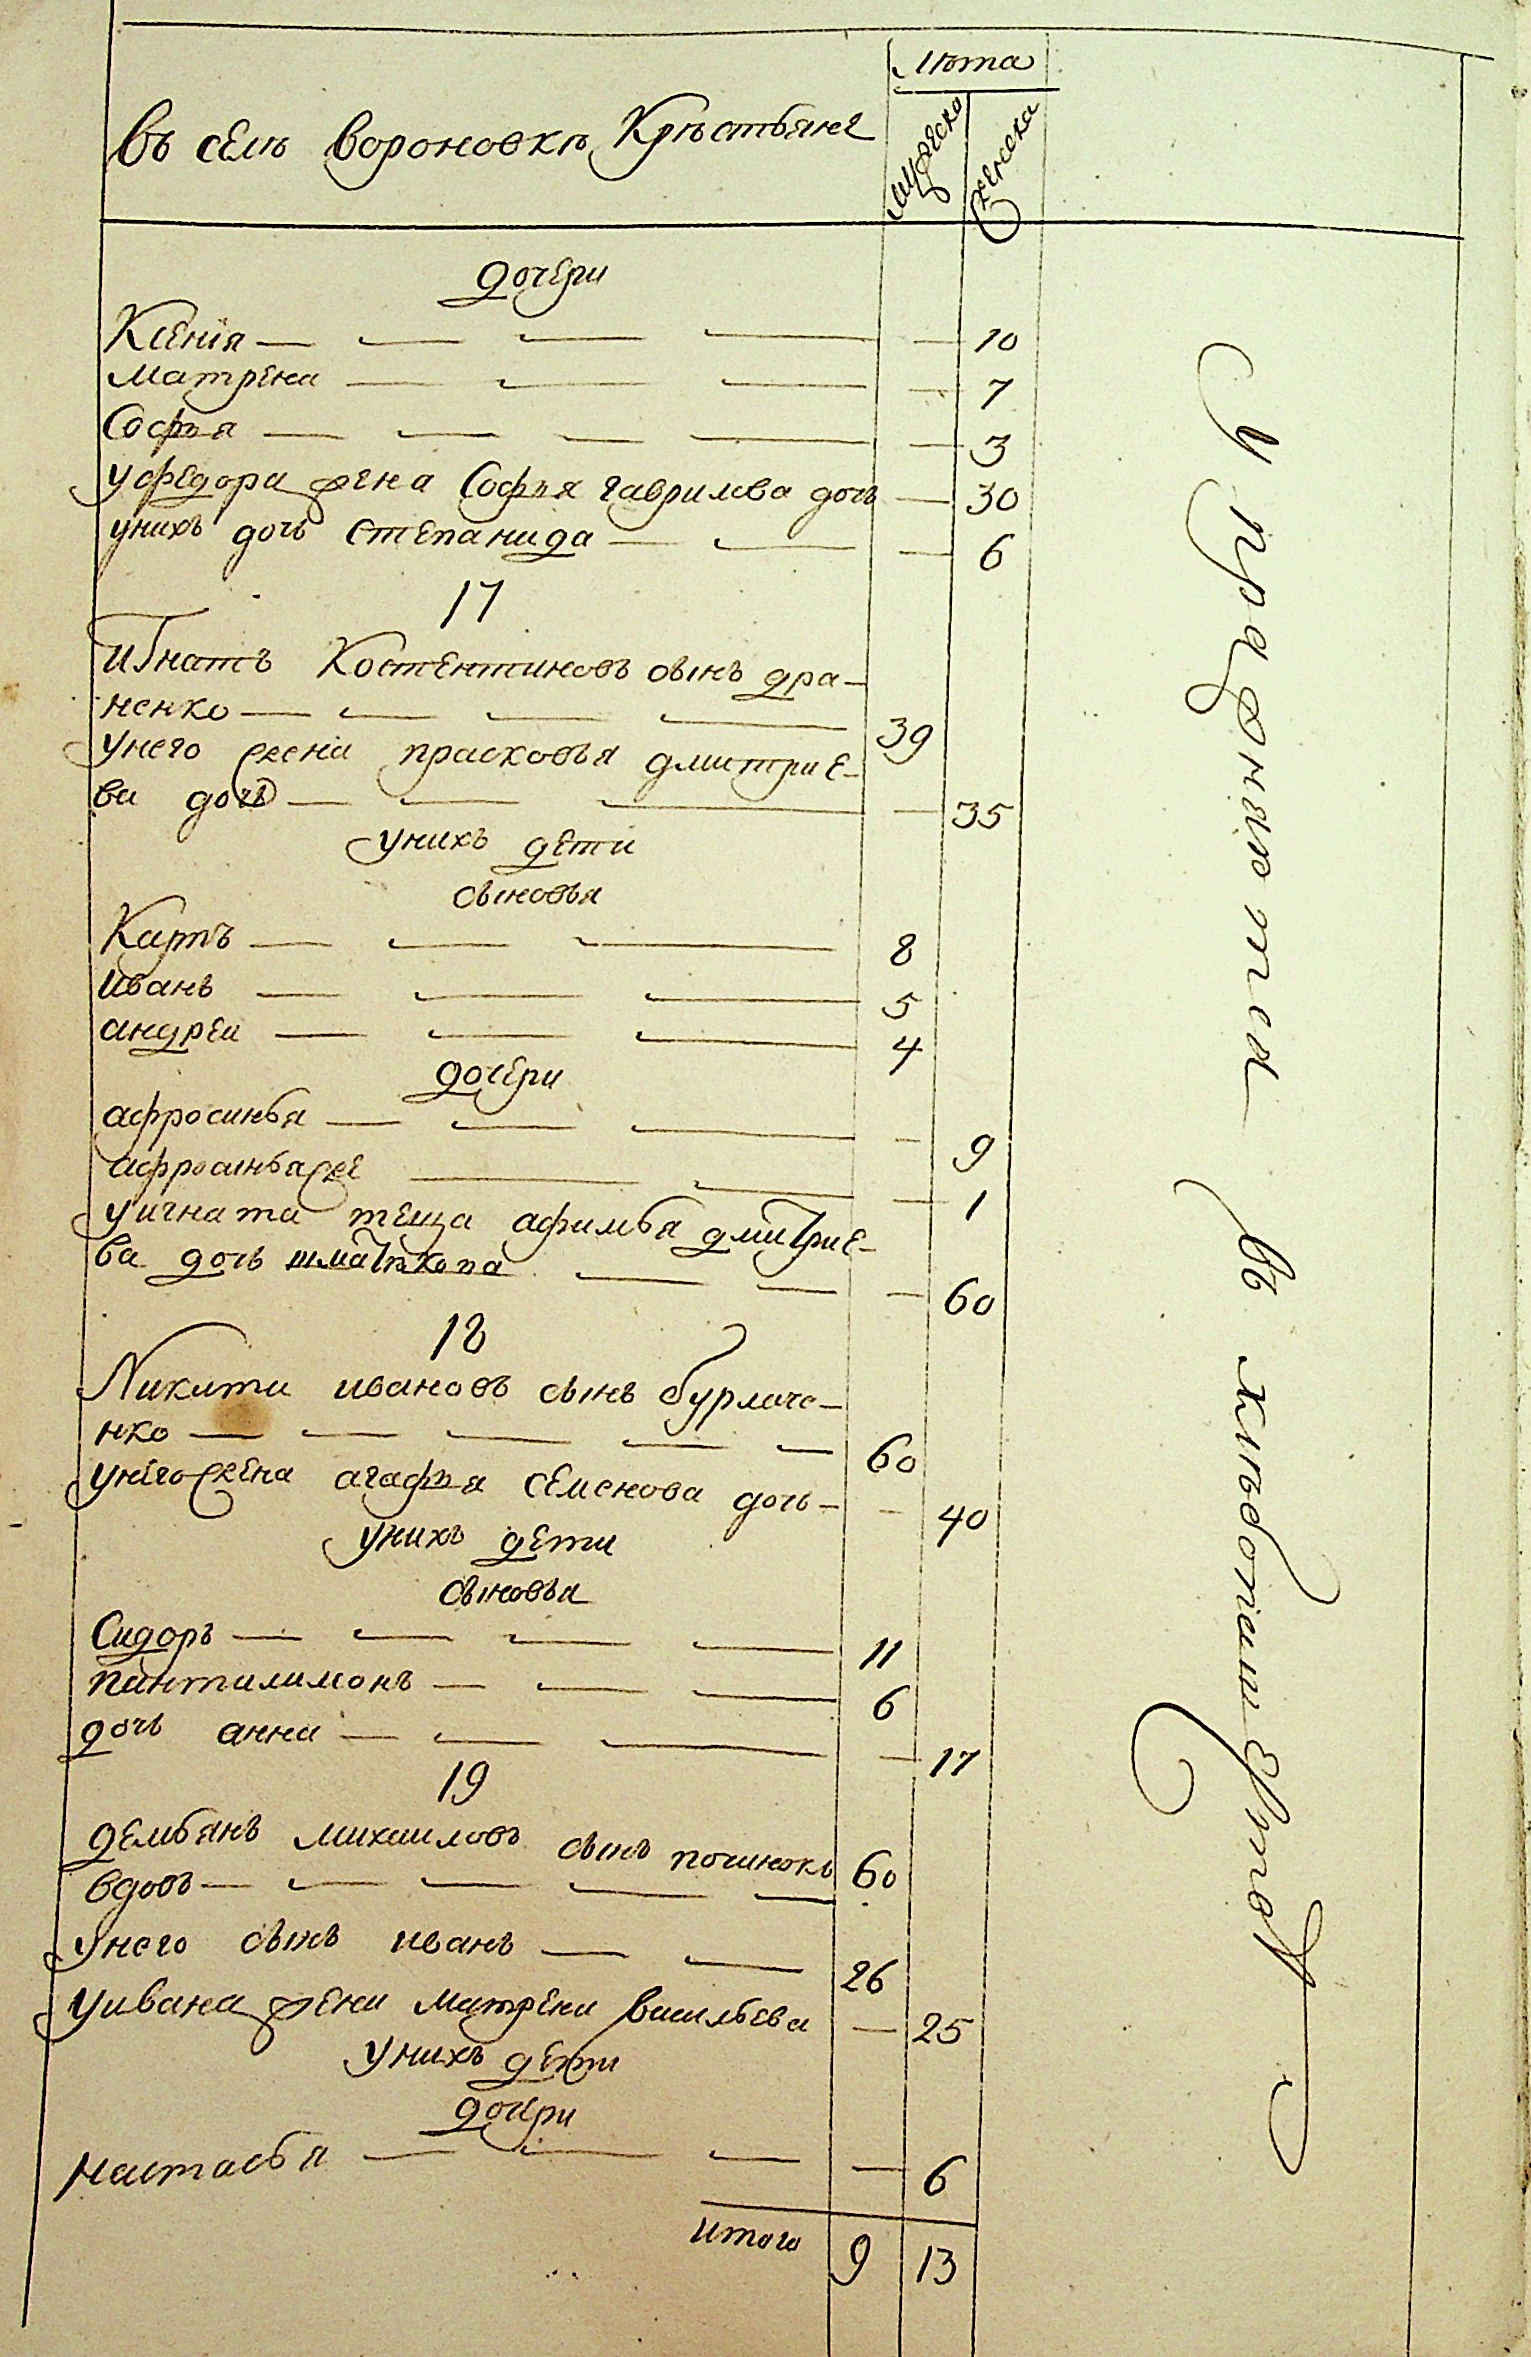 лѣта
въ селѣ вороновкѣ Крѣстьяне
мужеска
женска
дочери
Ксенїя — — — — — 10
матрена — — — — 7
Софья — — — — — 3
у федора жена Софья гаврилова дочь — 30
унихъ дочь степанида — — — 6
17
игнатъ Костентиновъ сынъ дра-
ненко — — — — 39
унего жена прасковья дмитрие-
ва дочь — — — — 35
унихъ дети
сыновья
Карпъ — — — 8
иванъ — — — 5
андреи — — — 4
дочери
афросинья — — — — 9
афросинья же — — — 1
уигната теща афимья дмитрие-
ва дочь — — — 60
18
Никита ивановъ сынъ бурлаче-
нко — — — — — 60
унего жена агафья семенова дочь — — 40
унихъ дети
сыновья
Сидоръ — — — — 11
пантилимонъ — — — 6
дочь анна — — — — 17
19
демьянъ михаиловъ сынъ починокъ 60
вдовъ — — — — —
унего сынъ иванъ — — 26
уивана жена матрена васильева — 25
унихъ дети
дочери
настасья — — — — 6
итого 9 13
упражняются въ хлебопашестве